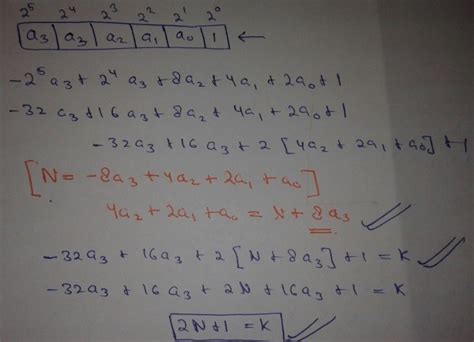 2⁵ 2⁴ 2³ 2² 2¹ 2⁰
a₃ a₃ a₂ a₁ a₀ 1 ←
-2⁵a₃ + 2⁴a₃ + 8a₂ + 4a₁ + 2a₀ + 1
-32a₃ + 16a₃ + 8a₂ + 4a₁ + 2a₀ + 1
-32a₃ + 16a₃ + 2[4a₂ + 2a₁ + a₀] + 1
[N = -8a₃ + 4a₂ + 2a₁ + a₀]
4a₂ + 2a₁ + a₀ = N + 8a₃
-32a₃ + 16a₃ + 2[N + 8a₃] + 1 = K
-32a₃ + 16a₃ + 2N + 16a₃ + 1 = K
2N + 1 = K